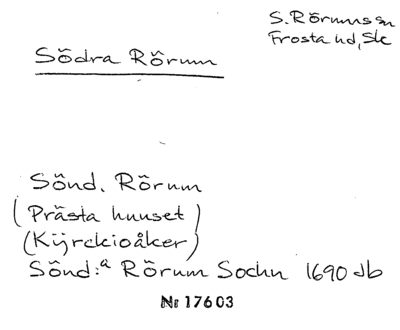 S. Rörums sn
Frosta hd, Sk
Södra Rörum
Sönd. Rörum
(Prästa huuset)
(Kÿrckioåker)
Sönd:a Rörum Sochn 1690 Jb
Nr 17603